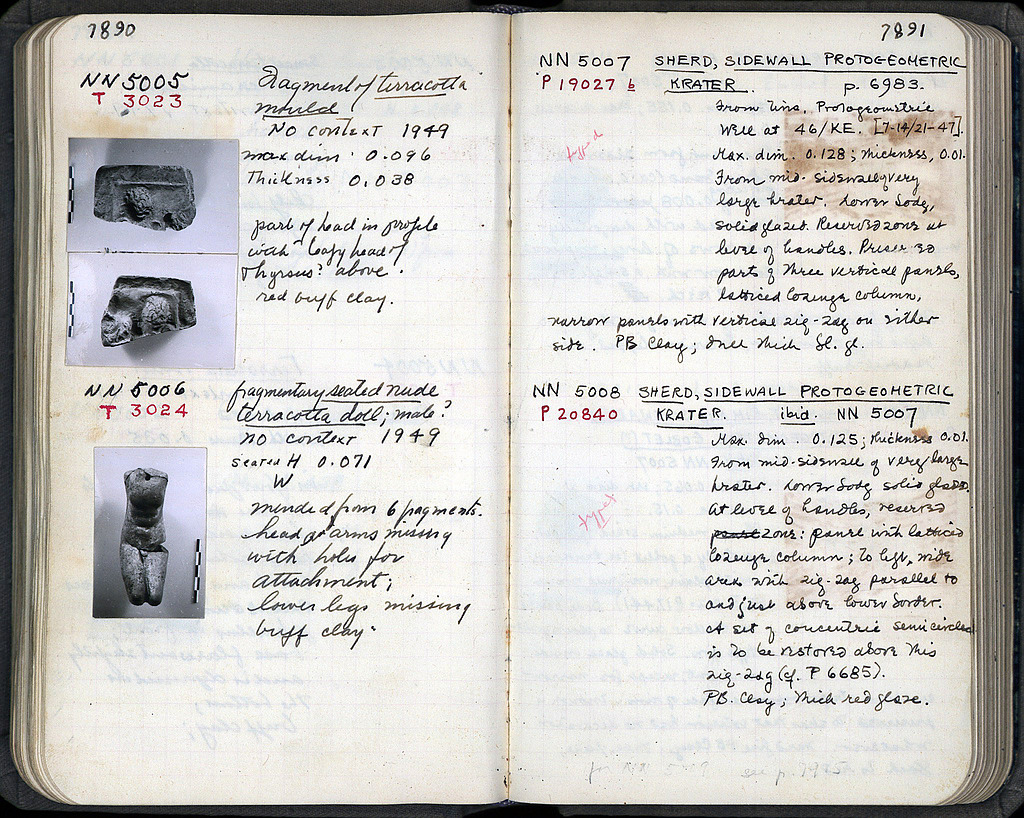 7890
NN 5005
T 3023
Fragment of terracotta
mould
No context 1949
max dim. 0.096
Thickness 0.038
part of head in profile
with "leafy head of
thyrsus? above.
red buff clay.
NN 5006
T 3024
fragmentary seated nude
terracotta doll; male?
No context 1949
seated H 0.071
W
mended from 6 fragments.
head & arms missing
with holes for
attachment;
lower legs missing
buff clay.
7891
NN 5007 SHERD, SIDEWALL PROTOGEOMETRIC
P 19027 b KRATER. p. 6983.
From Protogeometric
Well at 46/KE. [7-14/21-47].
Max. dim. 0.128; thickness, 0.01.
From mid-sidewall of very
large krater. Lower body,
solid glazed. Reserved zone at
level of handles. Preserved
parts of three vertical panels,
latticed lozenge column,
narrow panels with vertical zig-zag on either
side. PB Clay; dull thick bl. gl.
NN 5008 SHERD, SIDEWALL PROTOGEOMETRIC
P 20840 KRATER. ibid. NN 5007
Max. dim. 0.125; thickness 0.01.
From mid-sidewall of very large
krater. Lower body solid glazed.
At level of handles, reserved
zone: panel with latticed
lozenge column; to left, wide
area with zig-zag parallel to
and just above lower border.
A set of concentric semicircles
is to be restored above this
zig-zag (cf. P 6685).
PB Clay; thick red glaze.
see p.